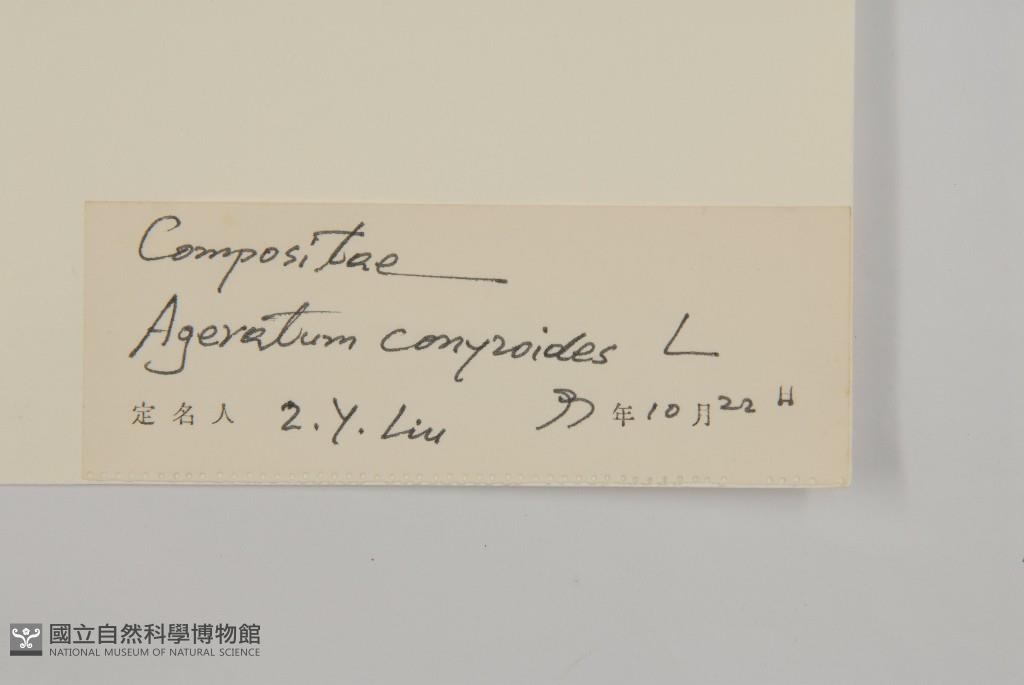 Compositae
Ageratum conyzoides L
定名人 Z.Y. Liu 年10月22日
國立自然科學博物館
NATIONAL MUSEUM OF NATURAL SCIENCE